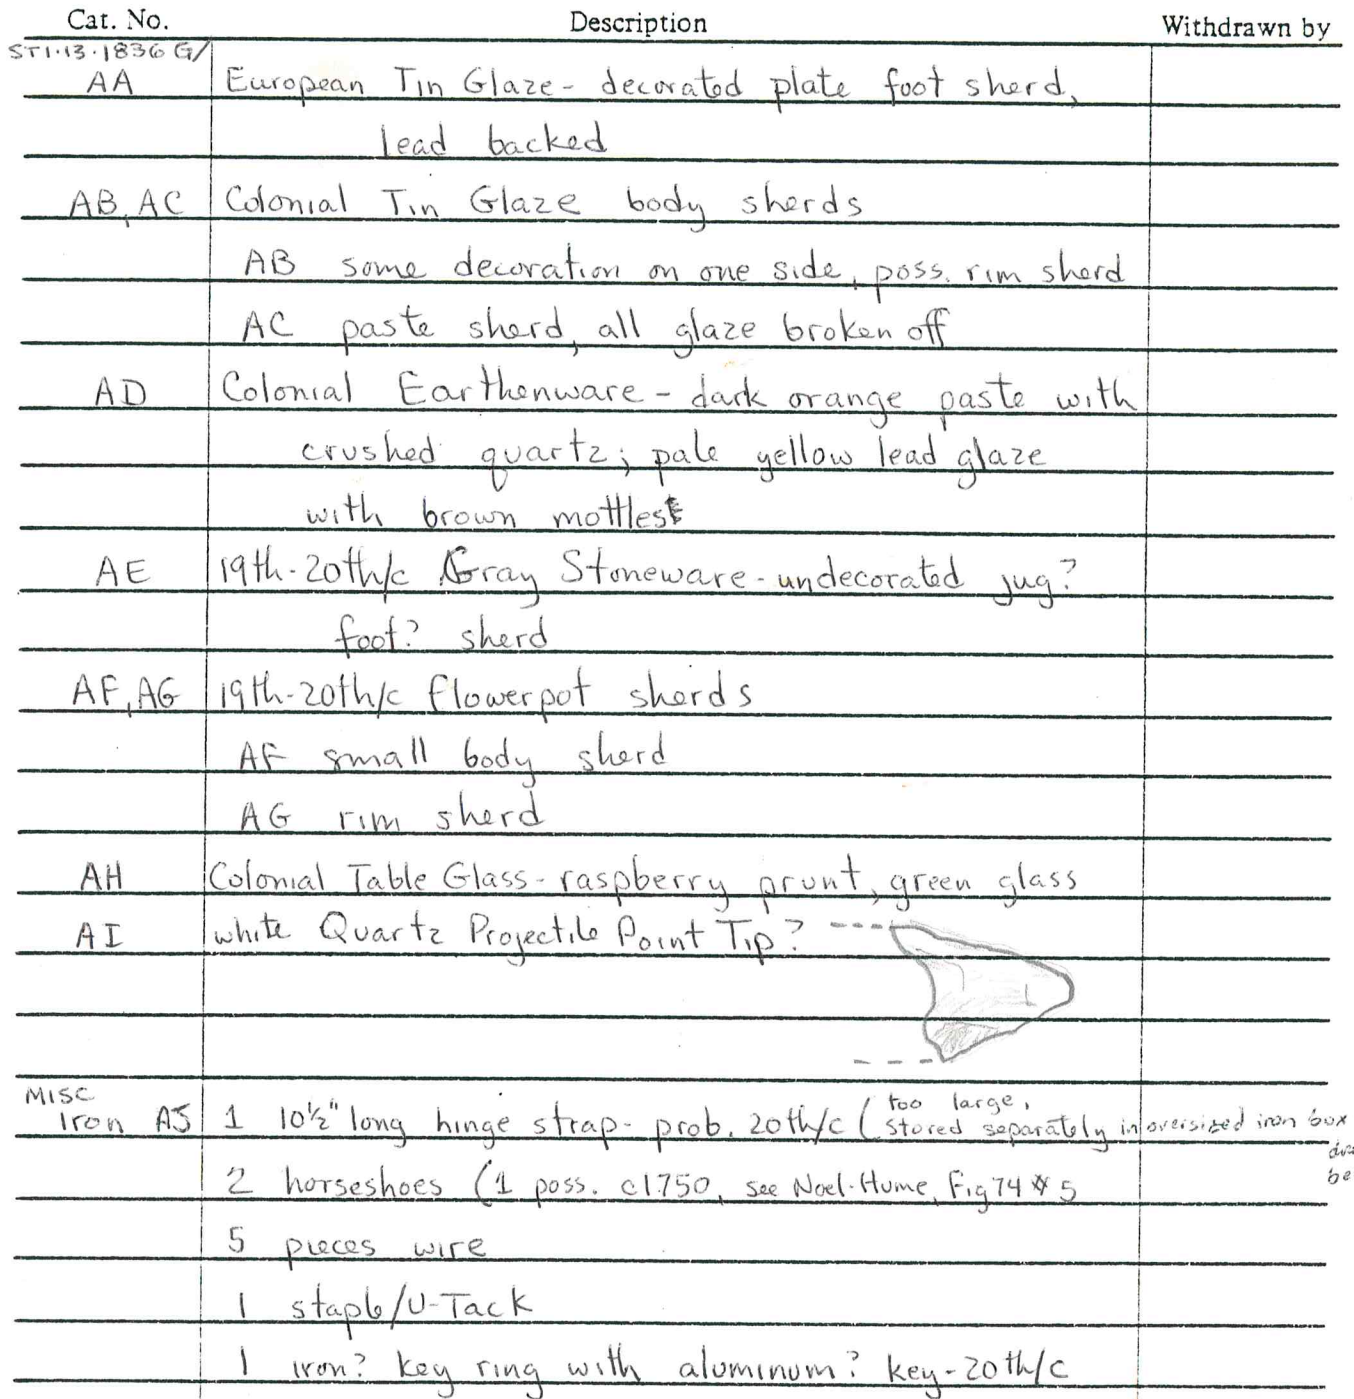 Cat. No. Description Withdrawn by
ST1·13·1836 G/
AA European Tin Glaze - decorated plate foot sherd,
lead backed
AB, AC Colonial Tin Glaze body sherds
AB some decoration on one side, poss. rim sherd
AC paste sherd, all glaze broken off
AD Colonial Earthenware - dark orange paste with
crushed quartz; pale yellow lead glaze
with brown mottles
AE 19th-20th/c Gray Stoneware - undecorated jug?
foot? sherd
AF, AG 19th-20th/c flowerpot sherds
AF small body sherd
AG rim sherd
AH Colonial Table Glass - raspberry prunt, green glass
AI white Quartz Projectile Point Tip?
MISC
Iron AJ 1 10½" long hinge strap - prob. 20th/c (too large,
stored separately in oversized iron box
2 horseshoes (1 poss. c1750, see Noel-Hume, Fig 74 # 5
be
5 pieces wire
1 staple/U-Tack
1 iron? key ring with aluminum? key - 20th/c